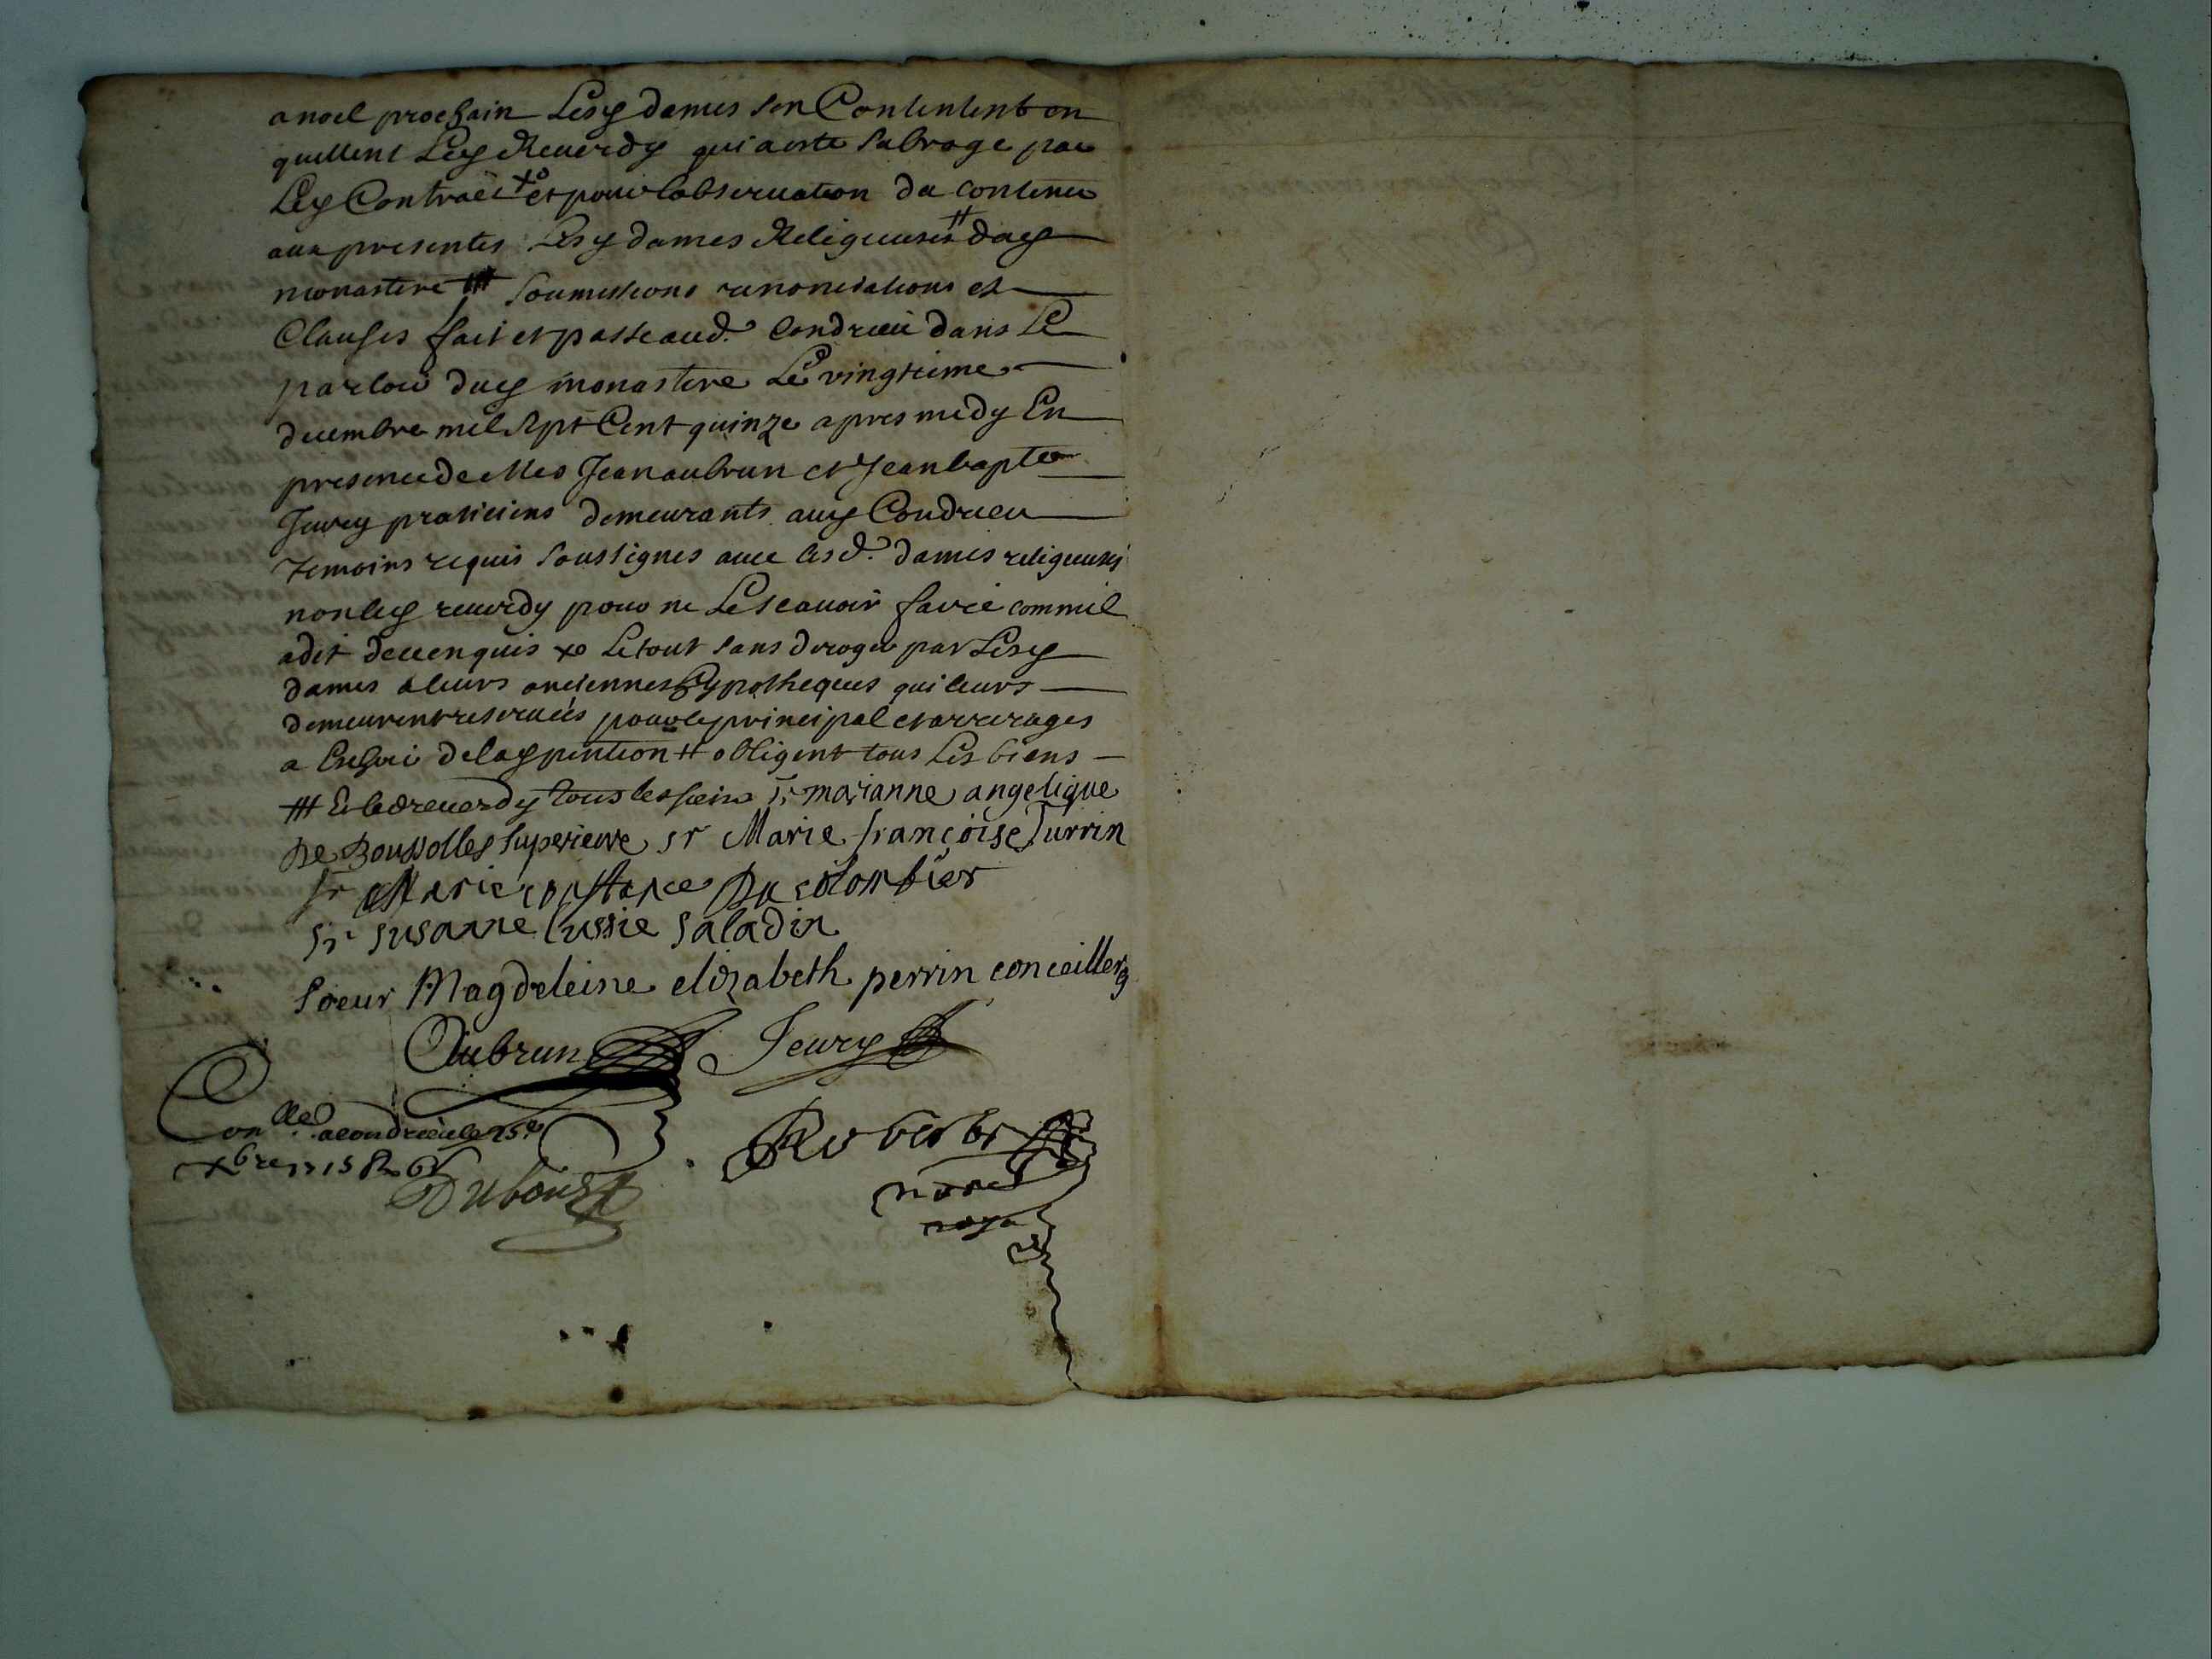 a noel prochain Lesy dames sen Contentent en
quittent Ley Reverdy qui a este subroge par
Ley Contract xo et pour lobservation du contenu
aux presentes Lesy dames Religieuses # duy
monastere ## soumissions renonciations et
Clauses fait et passe aud. Condrieu dans Le
parloir duy monastere Le vingtieme
decembre mil sept Cent quinze apres medy En
presence de Mes Jean aubrun et Jean bapte
Jeury praticiens demeurants auy Condrieu
temoins requis soussignes avec lesd. dames religieuses
non ley reverdy pour ne Le scavoir faire comme il
a dit de ce enquis xo Le tout sans deroger par Lesy
dames a leurs anciennes hypotheques qui leurs
demeurent reservees pour ley principal et arrerages
a Escheoir de lay pention # obligent tous Les biens
## Et led reverdy tous les siens sr marianne angelique
De Boussolles superieure sr Marie françoise Turrin
sr Marie constance Du colombier
sr susanne lussie saladin
soeur Magdeleine elizabeth perrin conceillere
Aubrun Jeury
Conlle a condrieu le 25e
xbre 1715 R
Duboust
Robert
nore
royal